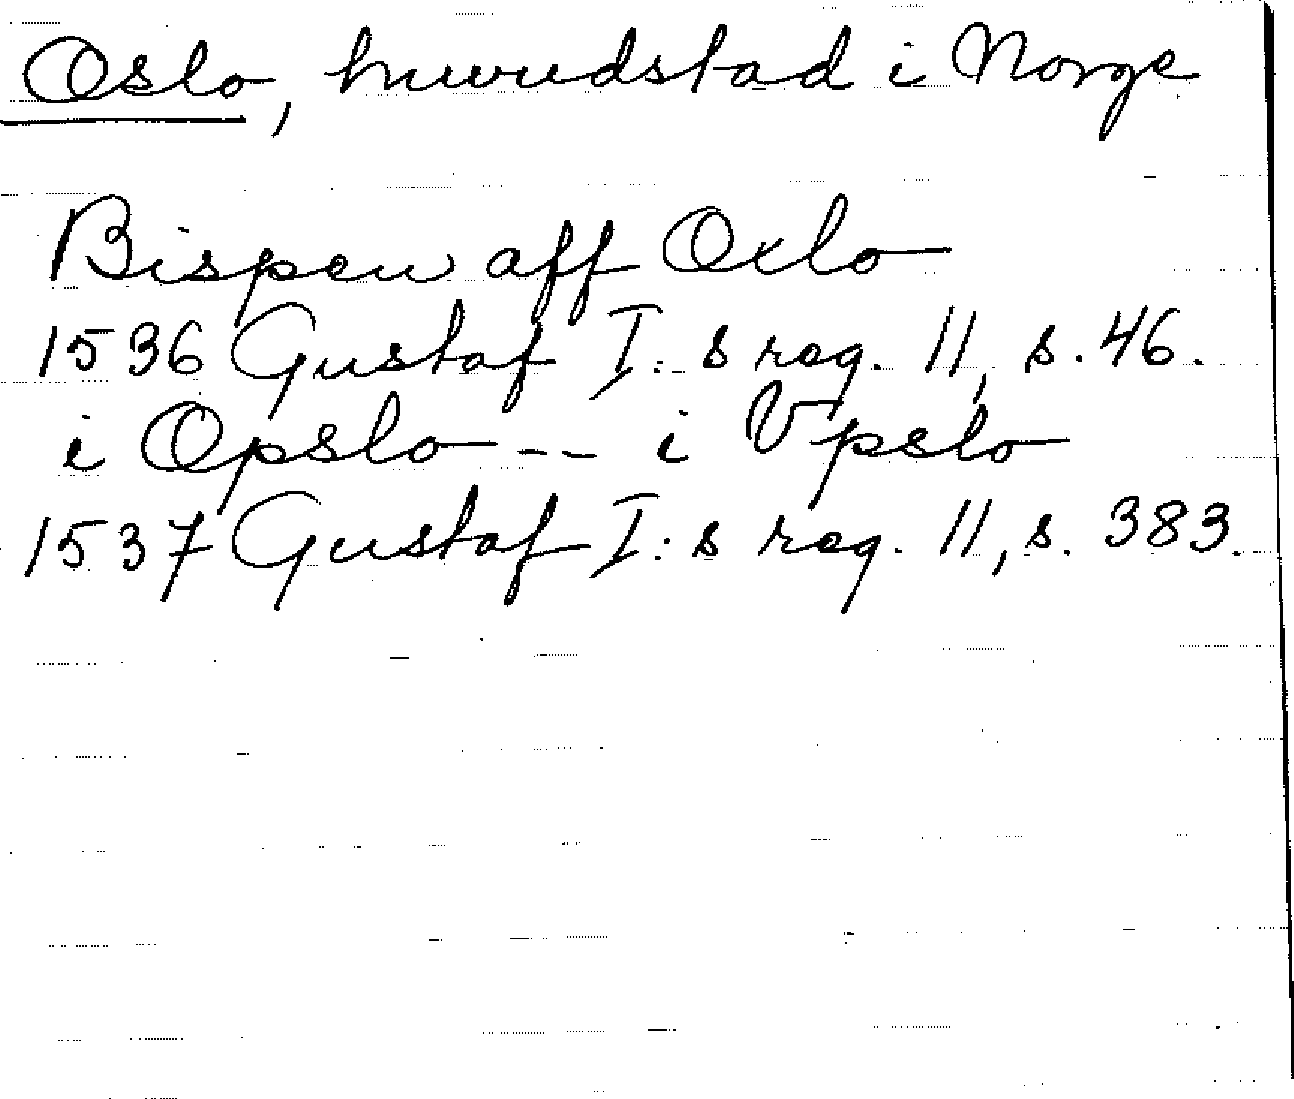 Oslo, huvudstad i Norge
Bispen aff Oxlo
1536 Gustaf I:s reg. 11, s. 46.
i Opslo -- i Vpslo
1537 Gustaf I:s reg. 11, s. 383.